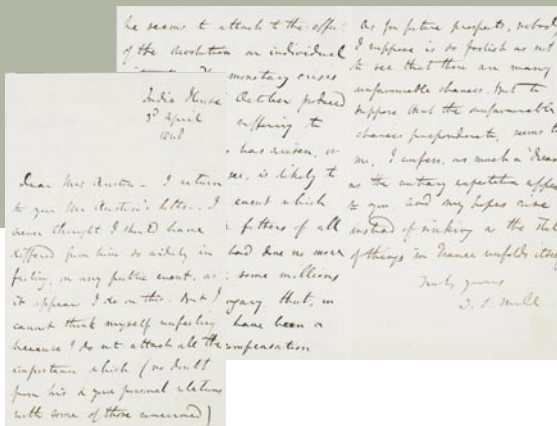 India House
3d April
1848
Dear Mrs Austin – I return
to you Mr Austin's letter. I
never thought I should have
differed from him so widely in
feeling, on any public event, as
it appears I do on this. But I
cannot think myself unfeeling
because I do not attach all the
importance which (no doubt
from his & your personal relations
with some of those concerned)
he seems to attach to the effect
of the revolution on individual
monetary crises
October produced
suffering to
has arisen, or
is likely to
event which
fetters of all
had done no more
some millions
that, in
have been a
compensation
As for future prospects, nobody
I suppose is so foolish as not
to see that there are many
unfavourable chances. But to
suppose that the unfavourable
chances preponderate, seems to
me, I confess, as much a "dream"
as the contrary expectation appears
to you, and my hopes rise
instead of sinking as the state
of things in France unfolds itself.
Truly yours
J. S. Mill